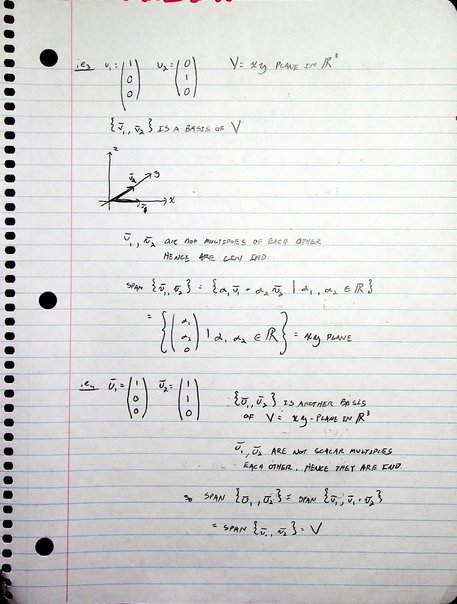 i.e3 v̄₁ = (1 0 0) v̄₂ = (0 1 0) V = xy PLANE IN ℝ³
{v̄₁, v̄₂} IS A BASIS OF V
z
v̄₂ y
v̄₁ x
v̄₁, v̄₂ are not MULTIPLES OF EACH OTHER
HENCE ARE LIN IND.
SPAN {v̄₁, v̄₂} = {α₁v̄₁ + α₂v̄₂ | α₁, α₂ ∈ ℝ}
= {(α₁ α₂ 0) | α₁, α₂ ∈ ℝ} = xy PLANE
i.e4 ū₁ = (1 0 0) ū₂ = (1 1 0) {ū₁, ū₂} IS ANOTHER BASIS
OF V = xy-PLANE IN ℝ³
ū₁, ū₂ ARE NOT SCALAR MULTIPLES
EACH OTHER. HENCE THEY ARE IND.
SO SPAN {ū₁, ū₂} = SPAN {v̄₁, v̄₁ + v̄₂}
= SPAN {v̄₁, v̄₂} = V